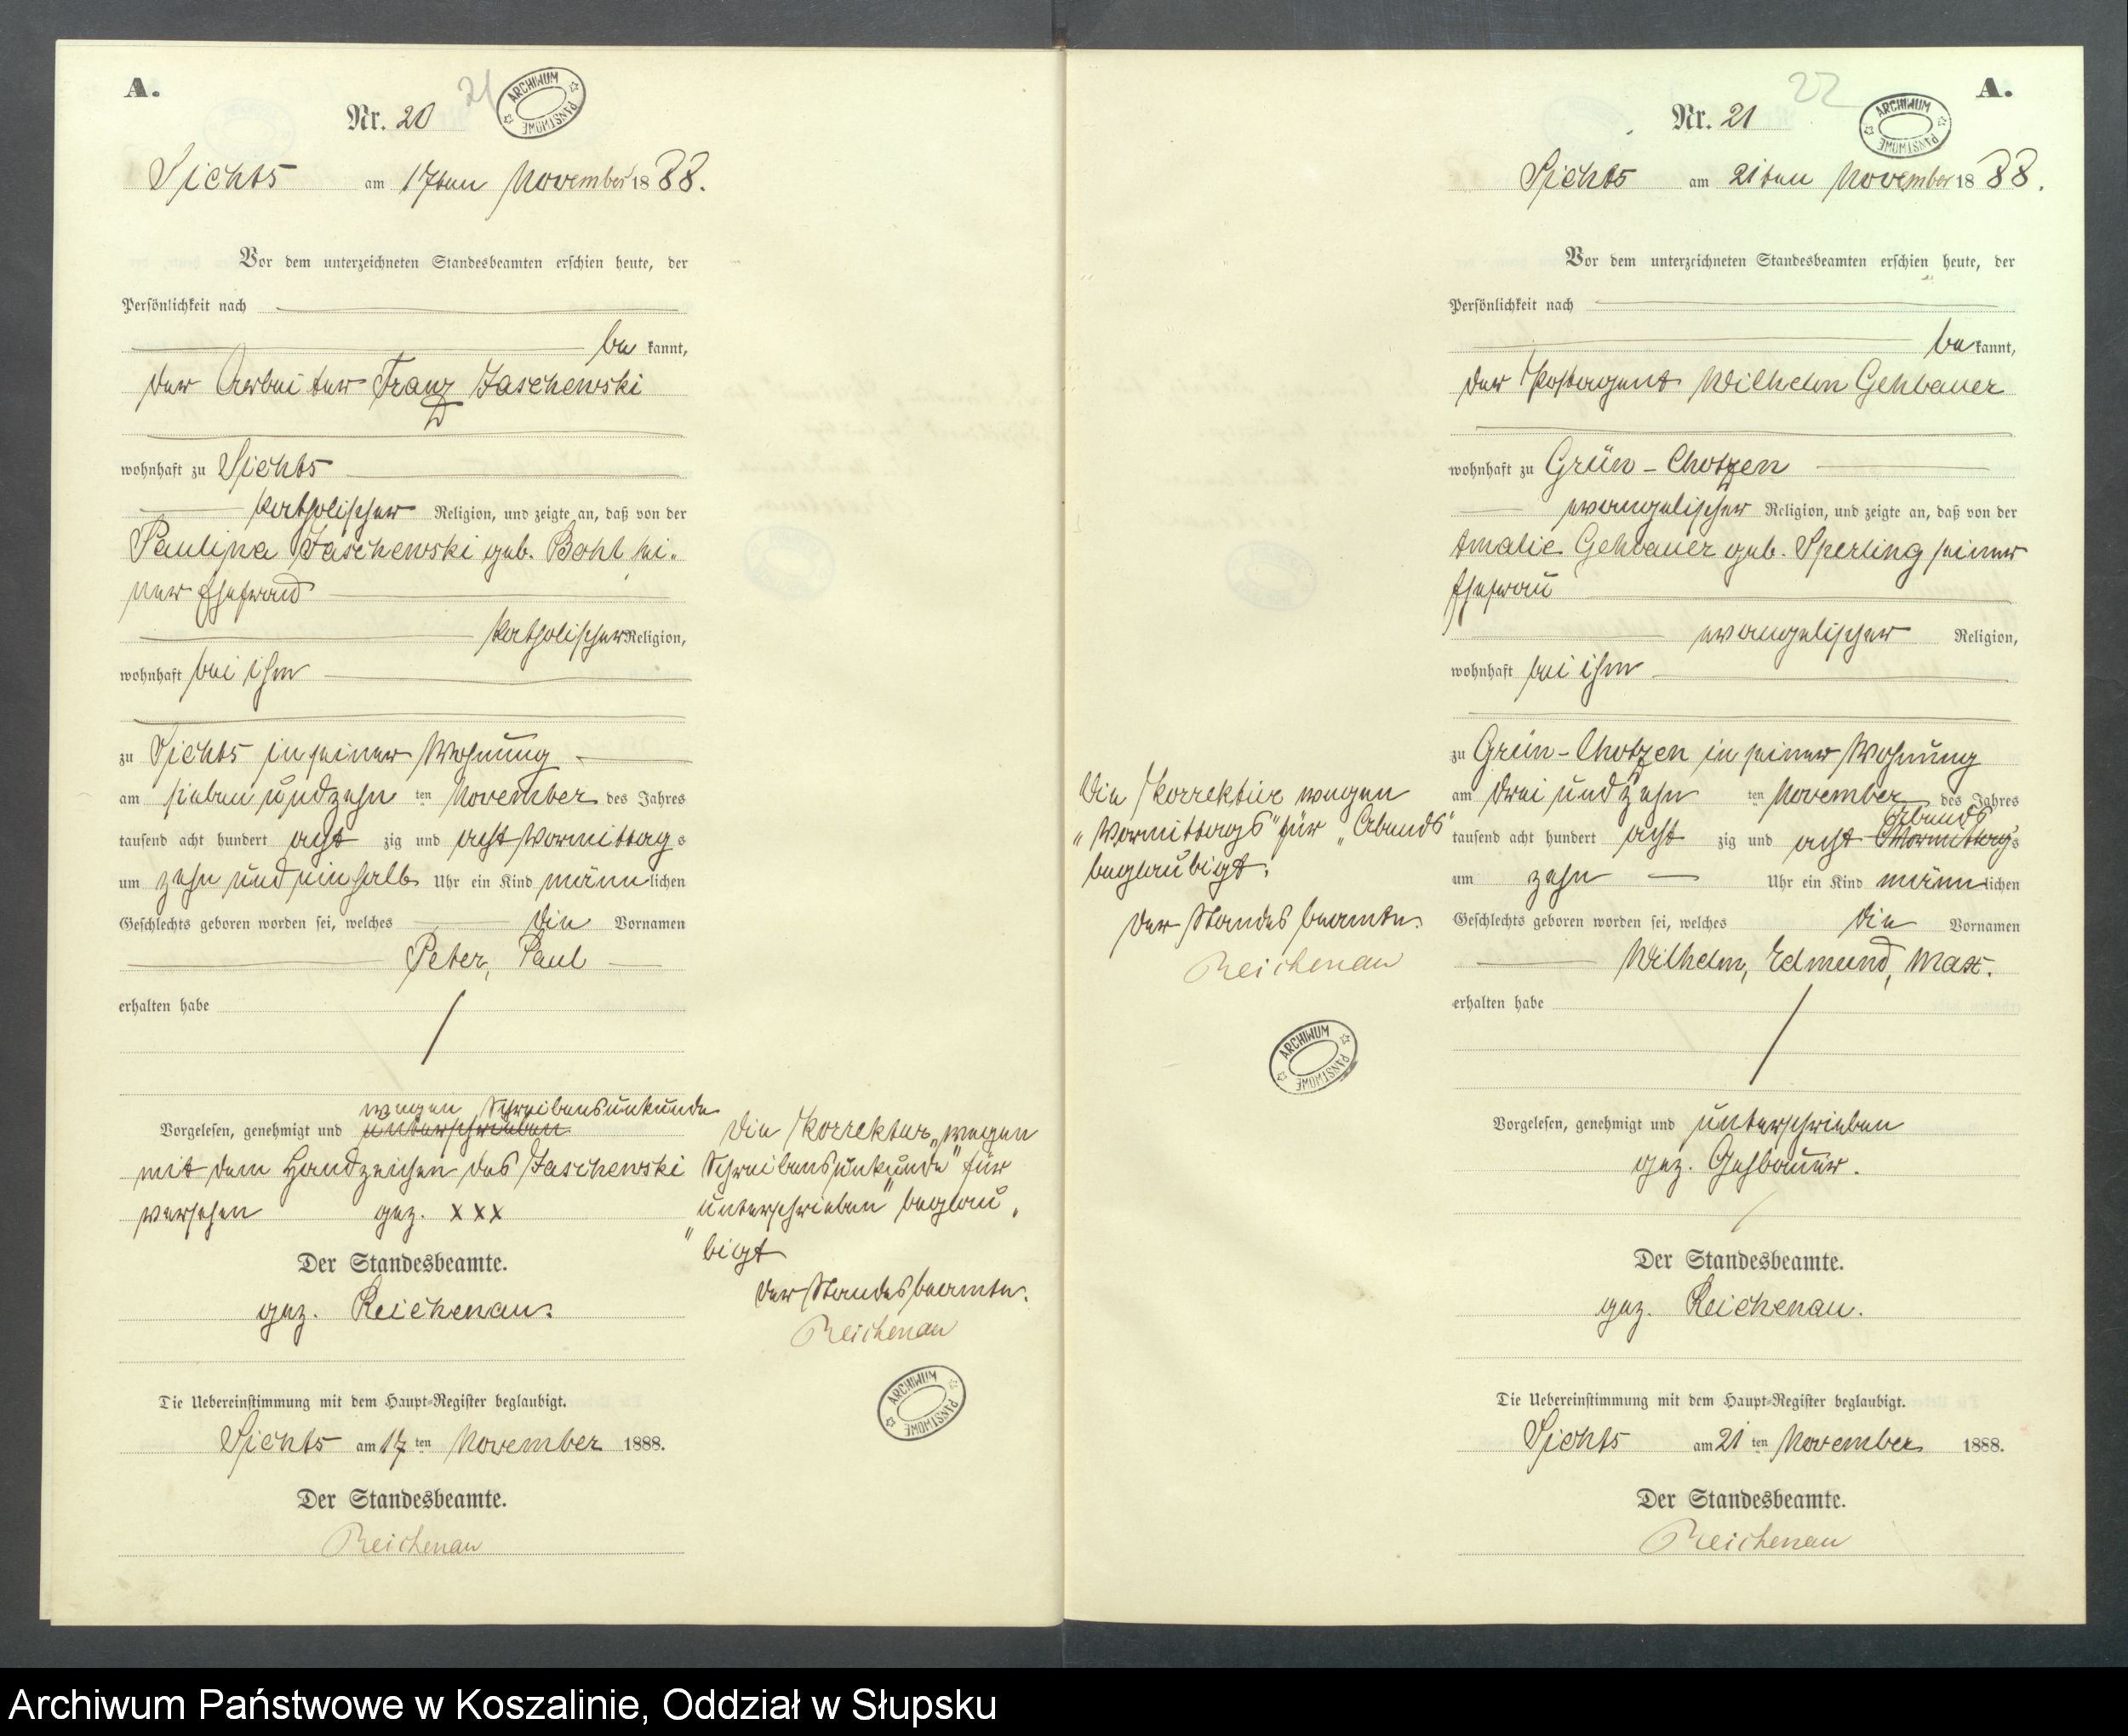 A.
Nr. 20
21
ARCHIWUM PAŃSTWOWE
Sichts am 17ten November 1888.
Vor dem unterzeichneten Standesbeamten erschien heute, der
Persönlichkeit nach
be kannt,
der Arbeiter Franz Jaschewski
wohnhaft zu Sichts
katholischer Religion, und zeigte an, daß von der
Paulina Jaschewski geb. Bohl sei-
ner Ehefrau
katholischer Religion,
wohnhaft bei ihm
zu Sichts in seiner Wohnung
am sieben und zehn ten November des Jahres
tausend acht hundert acht zig und acht Vormittag s
um zehn und ein halb Uhr ein Kind männ lichen
Geschlechts geboren worden sei, welches die Vornamen
Peter, Paul
erhalten habe
wegen Schreibensunkunde
Vorgelesen, genehmigt und unterschrieben
mit dem Handzeichen des Jaschewski
versehen gez. XXX
Der Standesbeamte.
gez. Reichenau.
Die Uebereinstimmung mit dem Haupt-Register beglaubigt.
Sichts am 17 ten November 1888.
Der Standesbeamte.
Reichenau
Die Korrektur „wegen
Schreibensunkunde" für
„unterschrieben" beglau-
bigt
Der Standesbeamte.
Reichenau
ARCHIWUM PAŃSTWOWE
A.
Nr. 21
22
ARCHIWUM PAŃSTWOWE
Sichts am 21ten November 1888.
Vor dem unterzeichneten Standesbeamten erschien heute, der
Persönlichkeit nach
be kannt,
der Postagent Wilhelm Gehbauer
wohnhaft zu Grün-Chotzen
evangelischer Religion, und zeigte an, daß von der
Amalie Gehbauer geb. Sperling seiner
Ehefrau
evangelischer Religion,
wohnhaft bei ihm
zu Grün-Chotzen in seiner Wohnung
am drei und zehn ten November des Jahres
Abends
tausend acht hundert acht zig und acht Vormittag s
um zehn Uhr ein Kind männ lichen
Geschlechts geboren worden sei, welches die Vornamen
Wilhelm, Edmund, Max.
erhalten habe
Vorgelesen, genehmigt und unterschrieben
gez. Gehbauer.
Der Standesbeamte.
gez. Reichenau.
Die Uebereinstimmung mit dem Haupt-Register beglaubigt.
Sichts am 21 ten November 1888.
Der Standesbeamte.
Reichenau
Die Korrektur wegen
„Vormittags" für „Abends"
beglaubigt.
Der Standesbeamte.
Reichenau
ARCHIWUM PAŃSTWOWE
Archiwum Państwowe w Koszalinie, Oddział w Słupsku